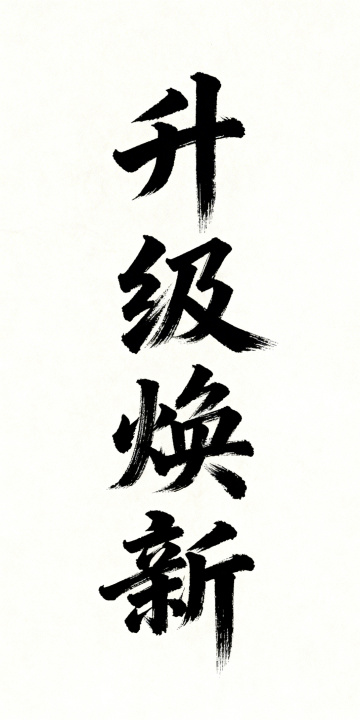 升级焕新